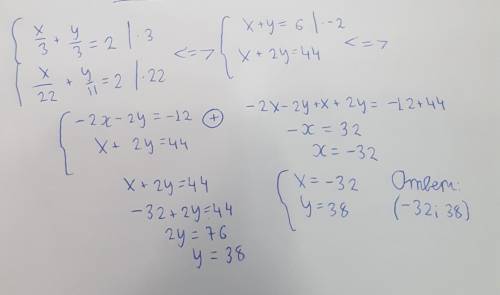 { x/3 + y/3 = 2 | ·3
x/22 + y/11 = 2 | ·22 <=> { x+y = 6 | ·-2
x + 2y = 44 <=>
{ -2x - 2y = -12 (+)
x + 2y = 44
-2x - 2y + x + 2y = -12 + 44
-x = 32
x = -32
x + 2y = 44
-32 + 2y = 44
2y = 76
y = 38
{ x = -32
y = 38
Ответ:
(-32; 38)